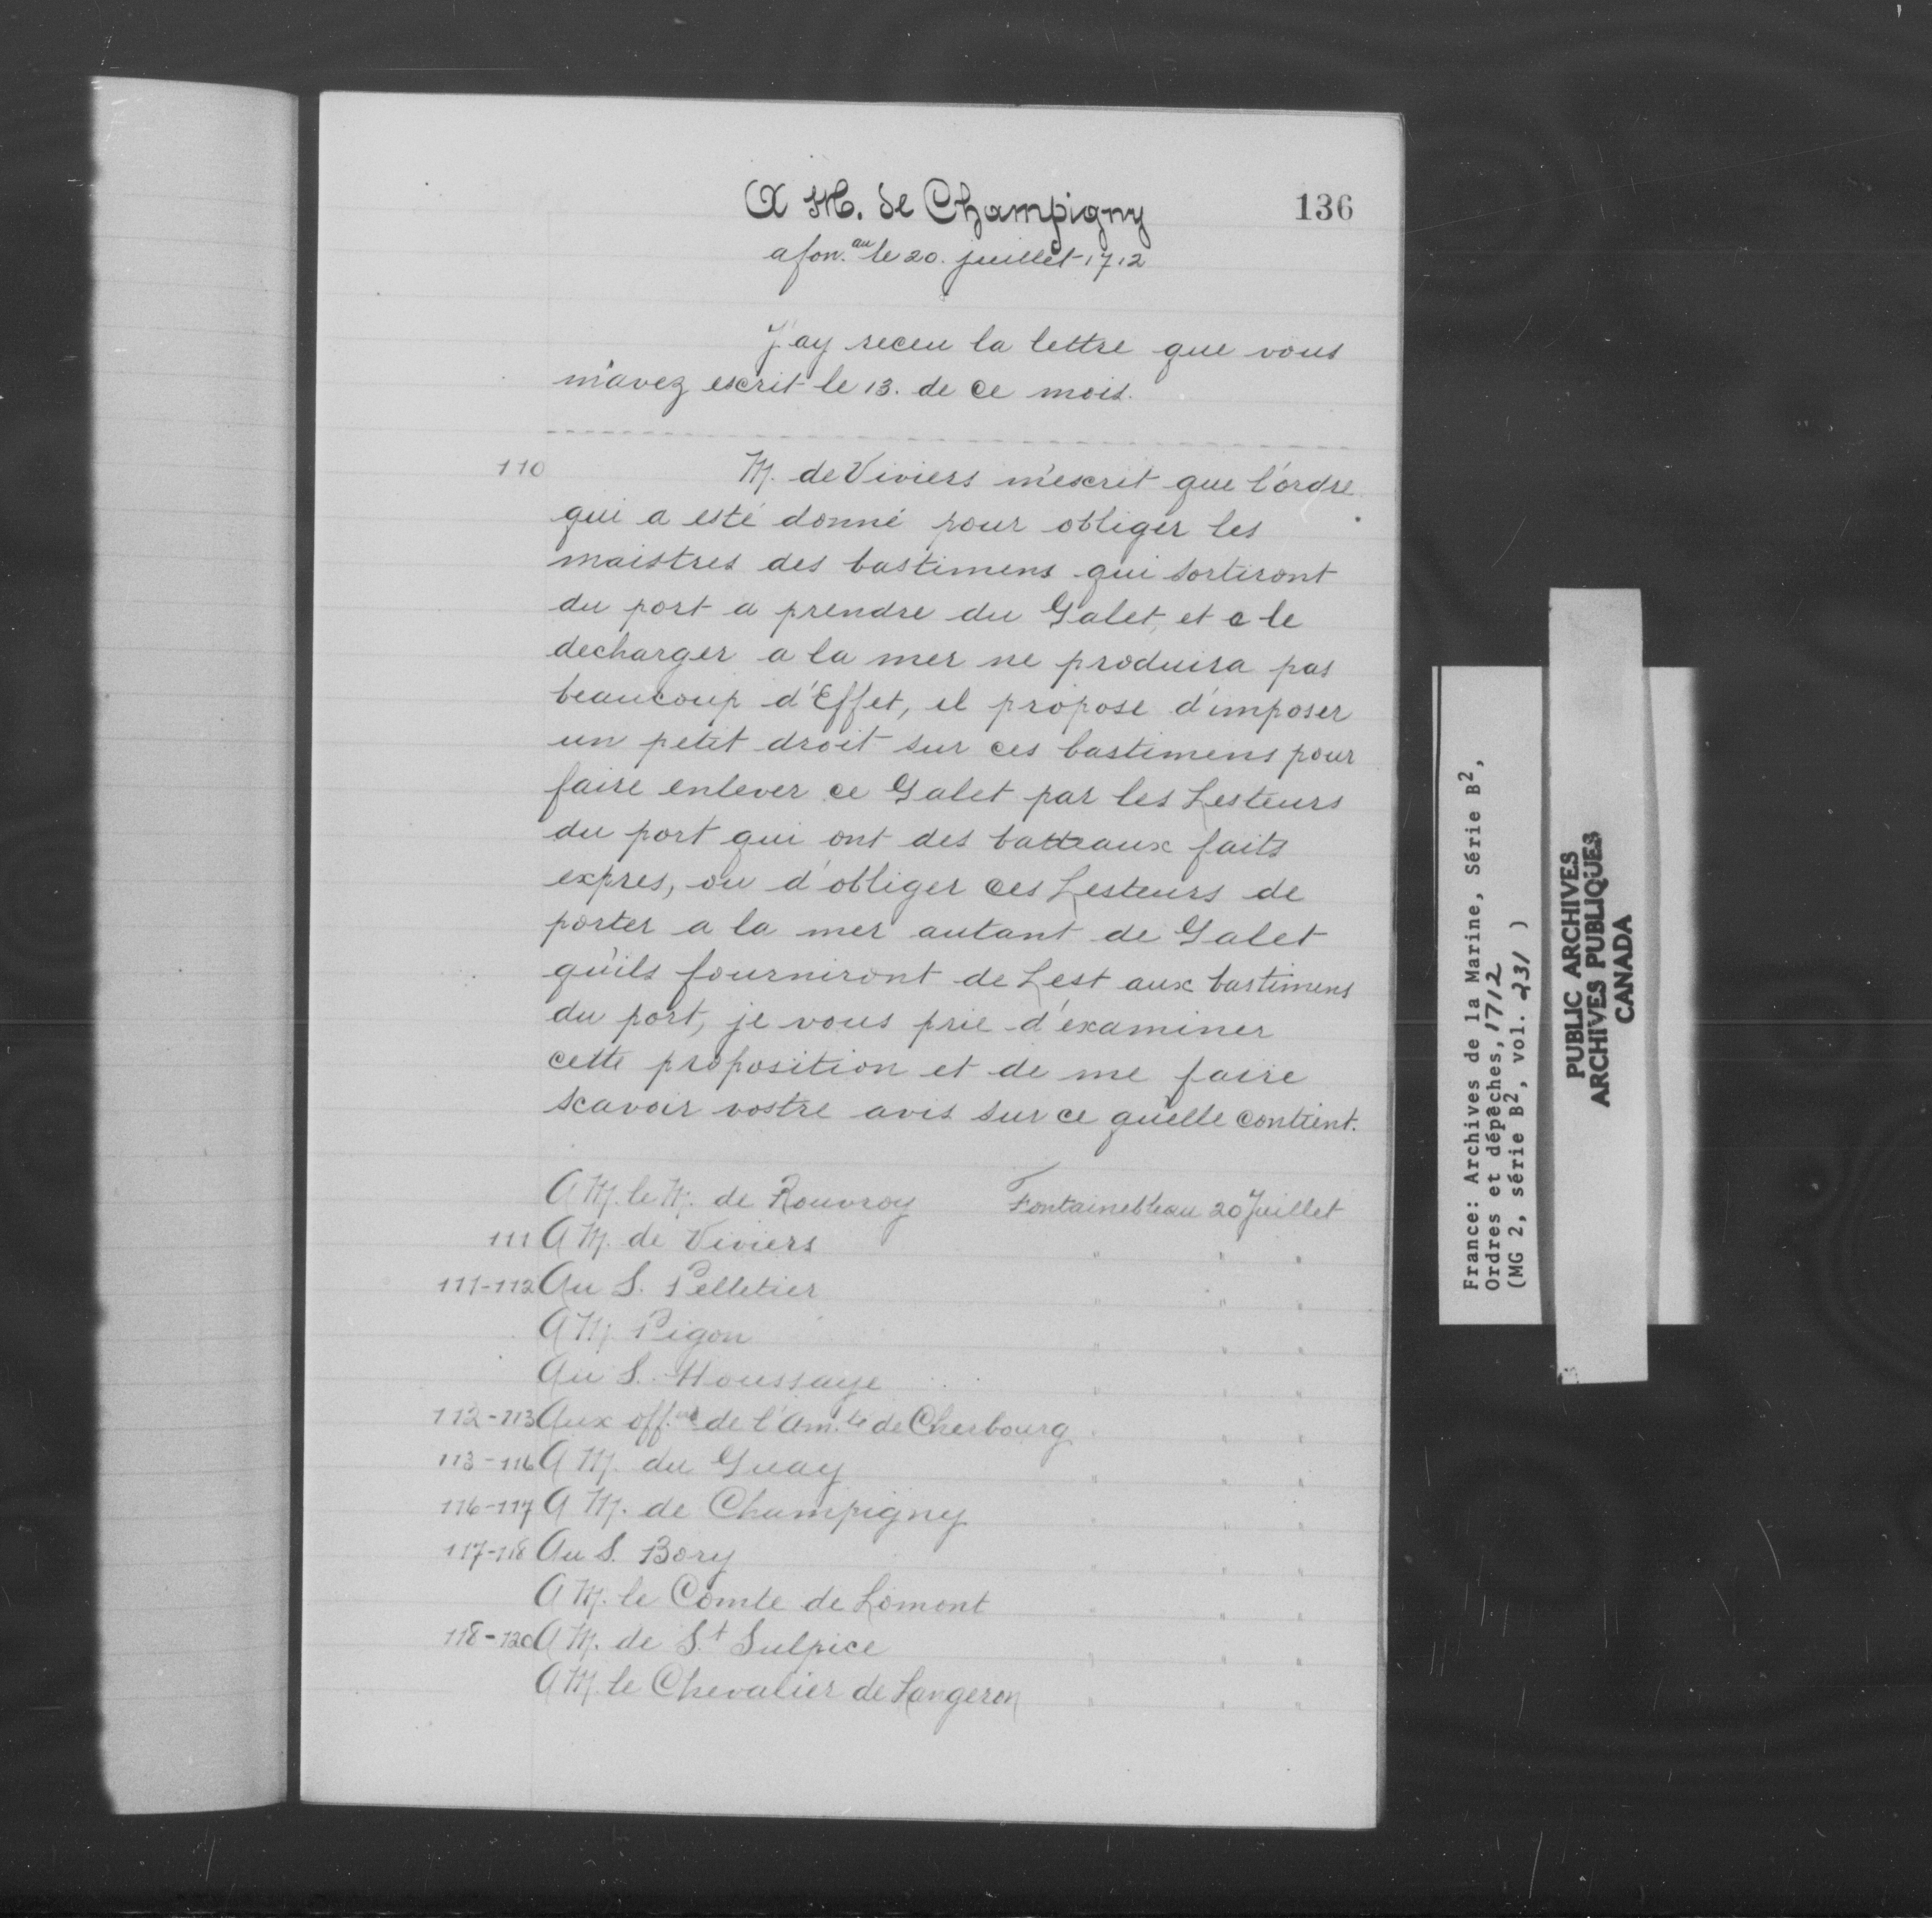 136
A M. de Champigny
a fon.au le 20. juillet 1712
J'ay receu la lettre que vous
m'avez escrit le 13. de ce mois.
110
M. de Viviers m'escrit que l'ordre
qui a esté donné pour obliger les
maistres des bastimens qui sortiront
du port a prendre du Galet, et a le
decharger a la mer ne produira pas
beaucoup d'Effet, il propose d'imposer
un petit droit sur ces bastimens pour
faire enlever ce Galet par les Lesteurs
du port qui ont des batteaux faits
expres, ou d'obliger ces Lesteurs de
porter a la mer autant de Galet
qu'ils fourniront de Lest aux bastimens
du port, je vous prie d'examiner
cette proposition et de me faire
scavoir vostre avis sur ce qu'elle contient.
A M. le M. de Rouvroy Fontainebleau 20 Juillet
111 A M. de Viviers " " "
111-112 Au S. Pelletier " " "
A M. Pigon " " "
Au S. Houssaye " " "
112-113 Aux off.ers de l'Am.té de Cherbourg " " "
113-116 A M. du Guay " " "
116-117 A M. de Champigny " " "
117-118 Au S. Bory " " "
A M. le Comte de Lomont " " "
118-120 A M. de S.t Sulpice " " "
A M. le Chevalier de Langeron " " "
France: Archives de la Marine, Série B2,
Ordres et dépêches, 1712
(MG 2, série B2, vol. 231 )
PUBLIC ARCHIVES
ARCHIVES PUBLIQUES
CANADA